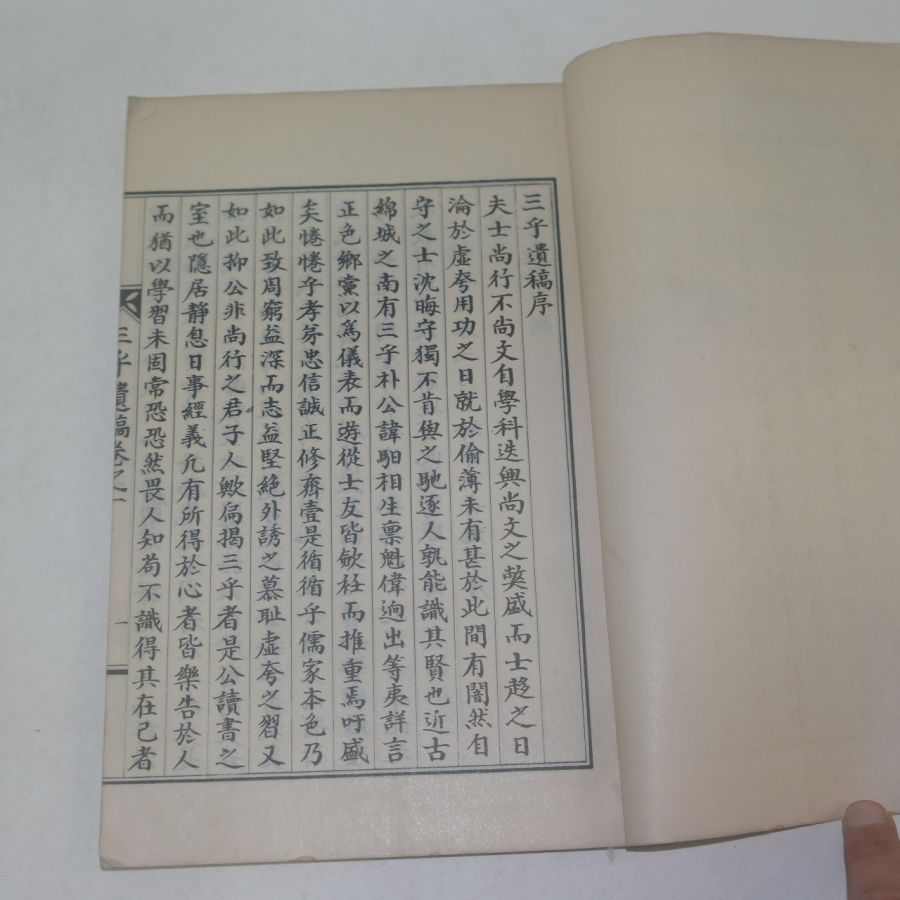 三乎遺稿序
夫士尚行不尚文自學科迭興尚文之獘盛而士趍之日
淪於虛夸用功之日就於偷薄未有甚於此間有闇然自
守之士沈晦守獨不肯與之馳逐人孰能識其賢也近古
綿城之南有三乎朴公諱馹相生禀魁偉逈出等夷詳言
正色鄉黨以爲儀表而遊從士友皆歛衽而推重焉吁盛
矣惓惓乎孝弟忠信誠正修齊壹是循循乎儒家本色乃
如此致周窮益深而志益堅絶外誘之慕耻虛夸之習又
如此抑公非尚行之君子人歟扁揭三乎者是公讀書之
室也隱居靜息日事經義凡有所得於心者皆樂告於人
而猶以學習未固常恐恐然畏人知苟不識得其在己者
三乎遺稿卷之一
一